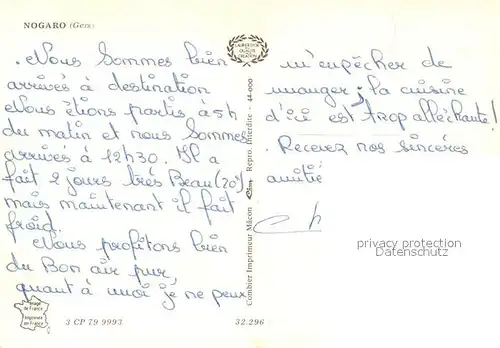 NOGARO (Gers)
. Nous sommes bien
arrivés à destination
Nous étions partis à 5h
du matin et nous sommes
arrivés à 12h30. Il a
fait 2 jours très Beau (20°)
mais maintenant il fait
froid.
Nous profitons bien
du Bon air pur,
quant à moi je ne peux
m'empêcher de
manger ; la cuisine
d'ici est trop alléchante !
. Recevez nos sincères
amitié
LABEL D'OR
DE QUALITÉ
Combier Imprimeur Mâcon Repro. Interdite - 44-000
privacy protection
Datenschutz
Image
de France
Imprimée
en France
3 CP 79 9993
32.296